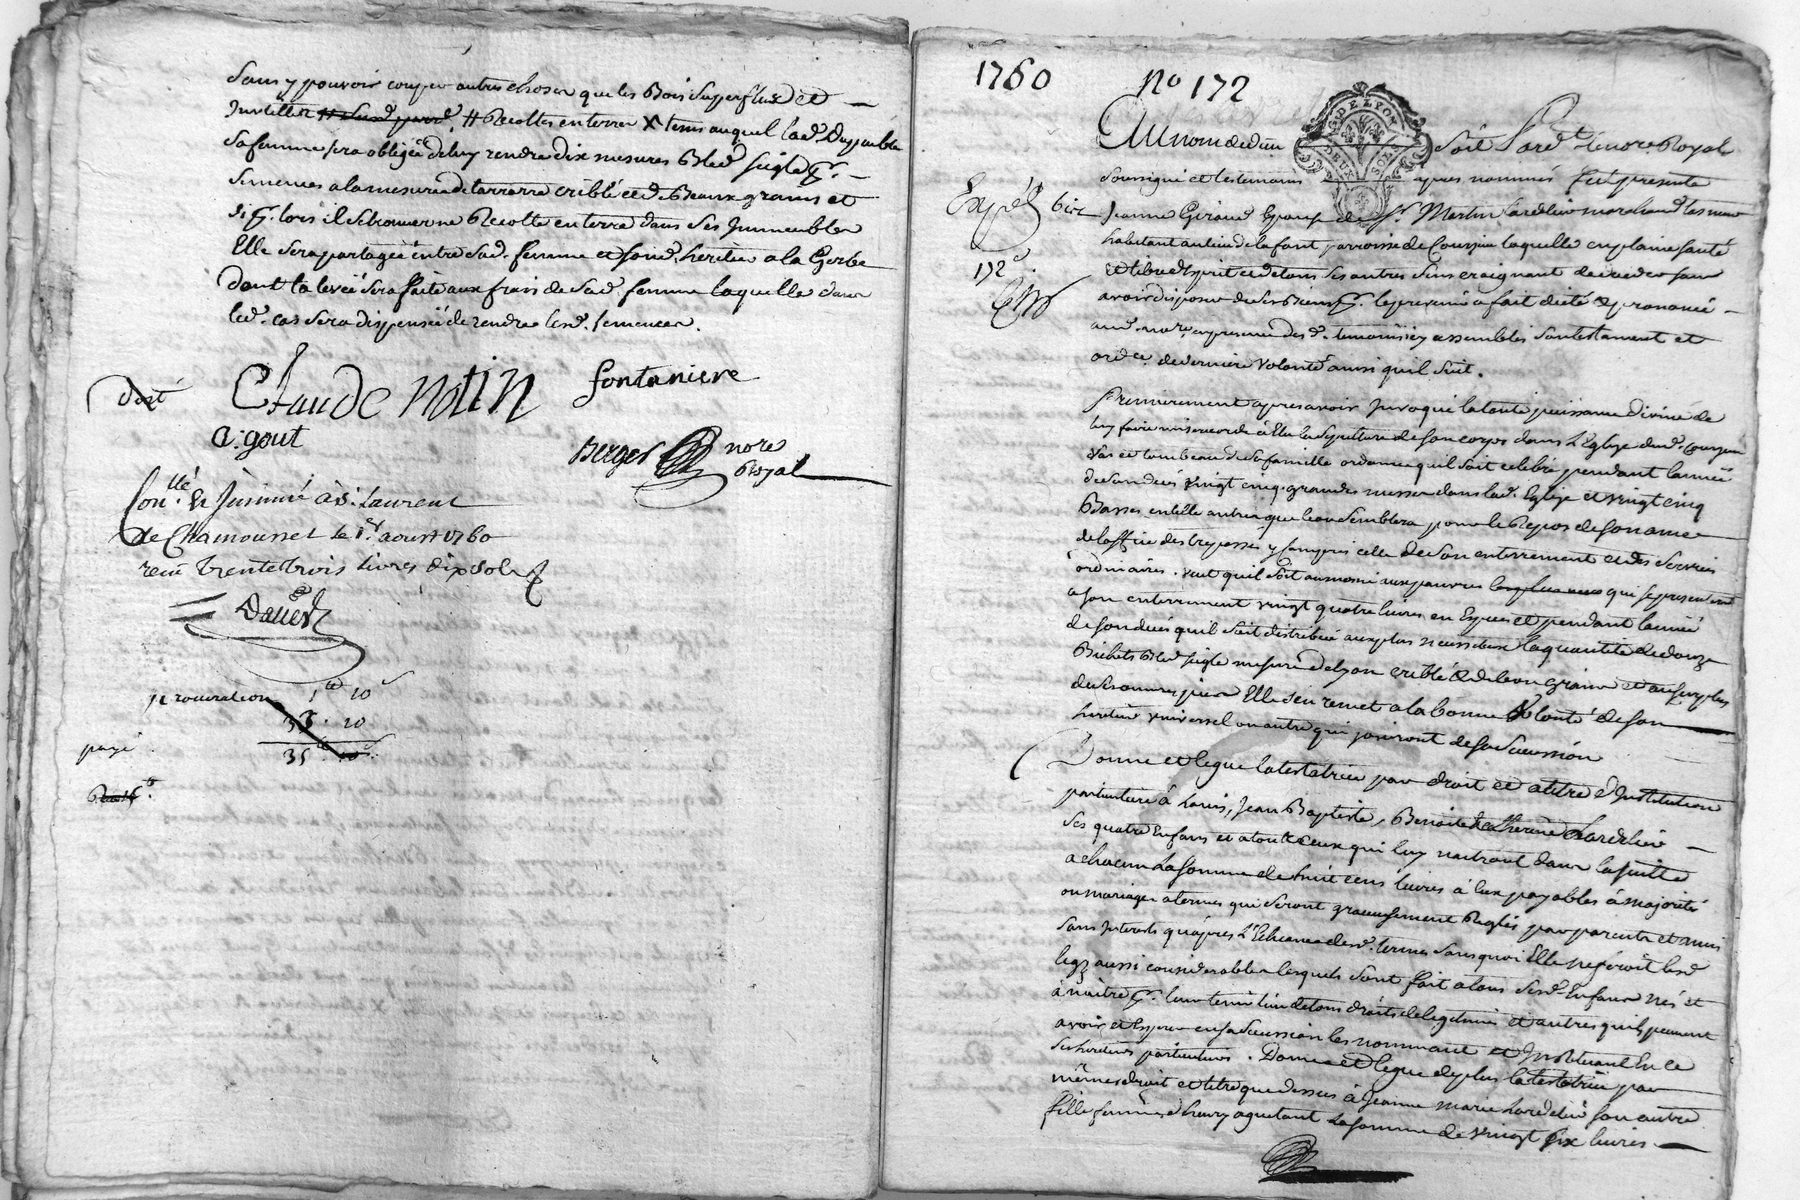 Sans y pouvoir couper autres choses que les Bois superflux et
Inutilles # Recoltes en terre X tems auquel lad. Dupeuble
sa femme sera obligée de luy rendre dix mesures Bled seigle pr.
semences a la mesure de tarrarre criblé et de Beaux grains et
si pr. lors il se trouve une Recolte en terre dans ses Immeubles
Elle sera partagée entre sad. femme et sond. heritier a la Gerbe
dont la levée sera faite aux frais de sad. femme laquelle dans
led. cas sera dispensée de rendre lesd. semences.
Claude notin fontaniere
a: gout
Berger nore
Royal
Conllé et Insinué à St. Laurent
de Chamousset le 1er. aoust 1760
reçu trente trois livres dix sols
procuration 1 10
33 . 10
35
payé
1760 No 172
GD DE LYON
DEUX SOLS
Au nom de dieu soit Pard. le nore. Royal
soussigné et les temoins apres nommés fut presente
Expéd
Jeanne Giraud Epouse de Sr. Martin Lardelier marchand
habitant au lieu de la font parroisse de Courzieu laquelle en pleine santé
172
et libre d'Esprit et de tous ses autres sens craignant de deceder sans
avoir disposer de ses Biens pr. le prevenir a fait dicté et prononcé
aud. nore. en presence desd. temoins icy assemblés son testament et
ordce. de derniere volonté ainsi quil suit.
Premierement apres avoir Invoqué la toute puissance divine de
luy faire misericorde a Elu la sepulture de son corps dans l'Eglise dud. Courzieu
vas et tombeau de sa famille ordonne quil soit celebré pendant l'année
de son decés vingt cinq grandes messes dans lad. Eglise et vingt cinq
Basses en telle autre que bon semblera pour le Repos de son ame
de l'office des trepassés y compris celle de son enterrement et des services
ordinaires. veut quil soit aumoné aux pauvres qui se presenteront
a son enterrement vingt quatre livres en Especes et pendant l'année
de son decés quil soit distribué aux plus necessiteux la quantité de douze
Bichets Bled seigle mesure de lyon criblé et de bon grain et au surplus
de ses oeuvres pies Elle s'en remet a la bonne volonté de son
heritier universel ou autre qui jouiront de sa succession
Donne et legue la testatrice par droit et a titre d'Institution
particuliere à Louis, Jean Baptiste, Benoite et Catherine Lardelier
ses quatre Enfans et a tous ceux qui luy naitront dans la suitte
a chacun la somme de huit cens livres à Eux payables à majorité
ou mariages a termes qui seront gracieusement Reglés par parents et amis
sans Interets qu'apres l'Echeance desd. termes sans quoi Elle ne feroit lesd.
legs aussi considerables lesquels sont fait a tous sesd. Enfans nés et
à naitre pr. leur tenir lieu de tous droits de legitime et autres quils peuvent
avoir et Esperer en sa succession les nommant et Instituant En ce
ses heritiers particuliers. Donne et legue de plus la testatrice par
mêmes droit et titre que dessus à Jeanne marie Lardelier son autre
fille femme d'henry aguetant la somme de vingt six livres